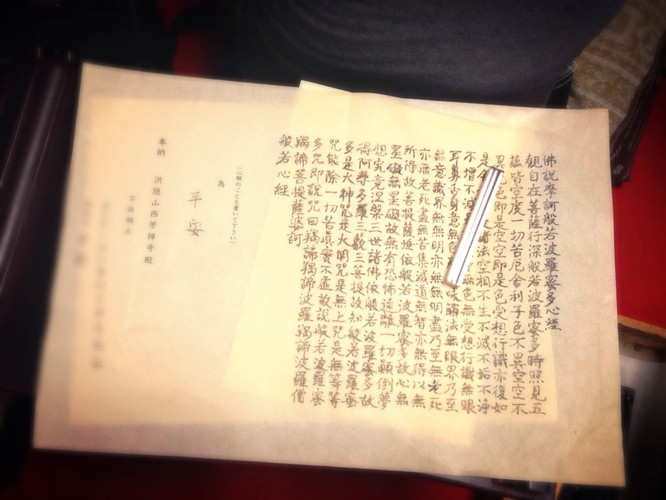 佛説摩訶般若波羅蜜多心経
観自在菩薩行深般若波羅蜜多時照見五
蘊皆空度一切苦厄舎利子色不異空空不
色即是空空即是色受想行識亦復如
是 諸法空相不生不滅不垢不浄
不増不減 無色無受想行識無眼
耳鼻舌身意無色 法無眼界乃至
無意識界無無明亦無無明盡乃至無老死
亦無老死盡無苦集滅道無智亦無得以無
所得故菩提薩埵依般若波羅蜜多故心無
罣礙無罣礙故無有恐怖遠離一切顛倒夢
想究竟涅槃三世諸佛依般若波羅蜜多故
得阿耨多羅三藐三菩提故知般若波羅蜜
多是大神咒是大明咒是無上咒是無等等
咒能除一切苦真實不虚故説般若波羅蜜
多咒即説咒曰羯諦羯諦波羅羯諦波羅僧
羯諦菩提薩婆訶
般若心経
願のことを書いて下さい)
為
平安
奉納 洪隠山西芳禅寺殿